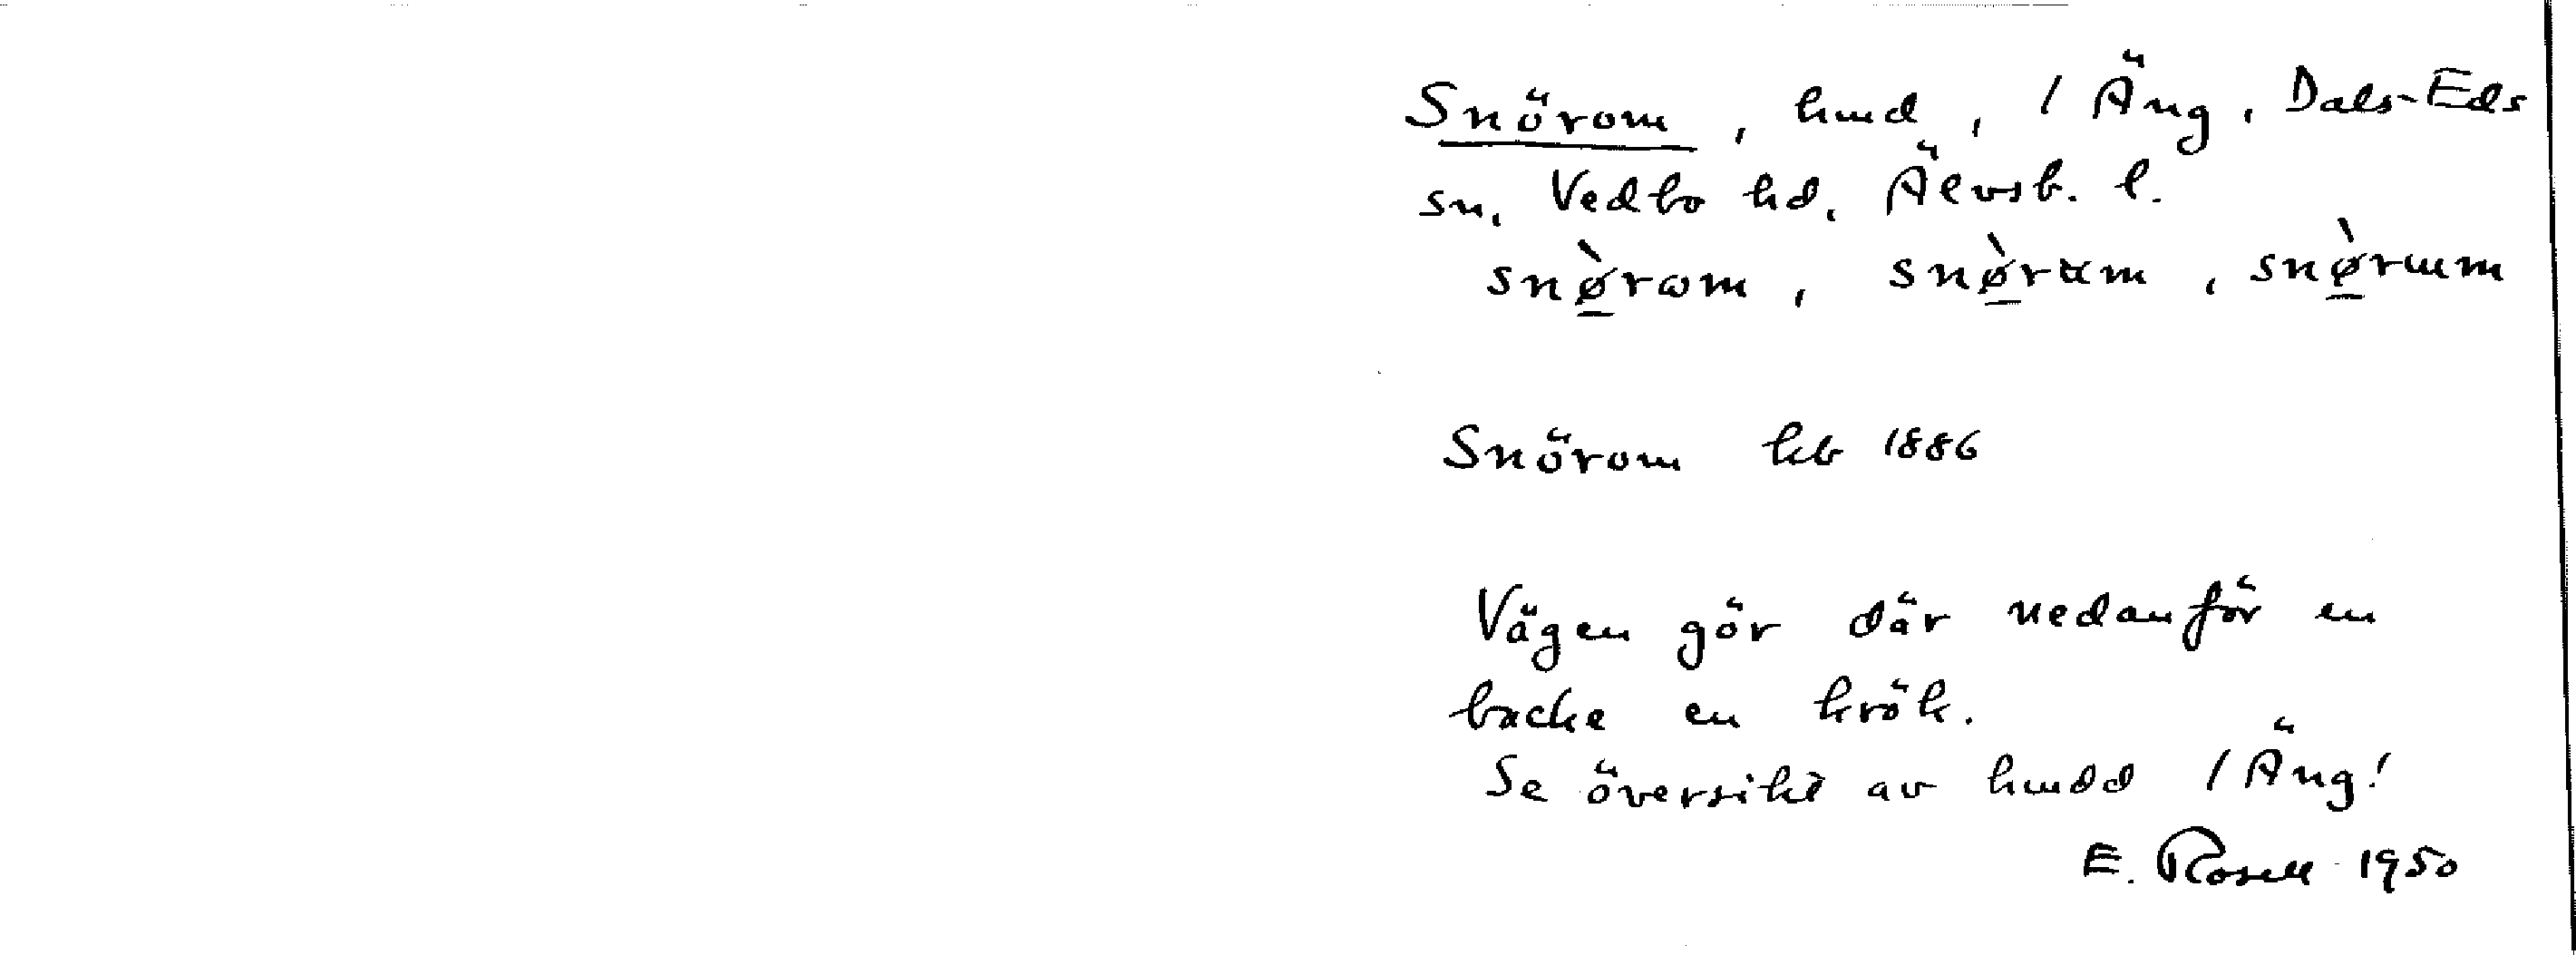 Snörom, hmd, 1 Äng, Dals-Eds
sn, Vedbo hd, Älvsb. l.
snø̀rɷm, snø̀rɐm, snø̀rɯm
Snörom kb 1886
Vägen gör där nedanför en
backe en krök.
Se översikt av hmdd 1 Äng!
E. Rosell 1950